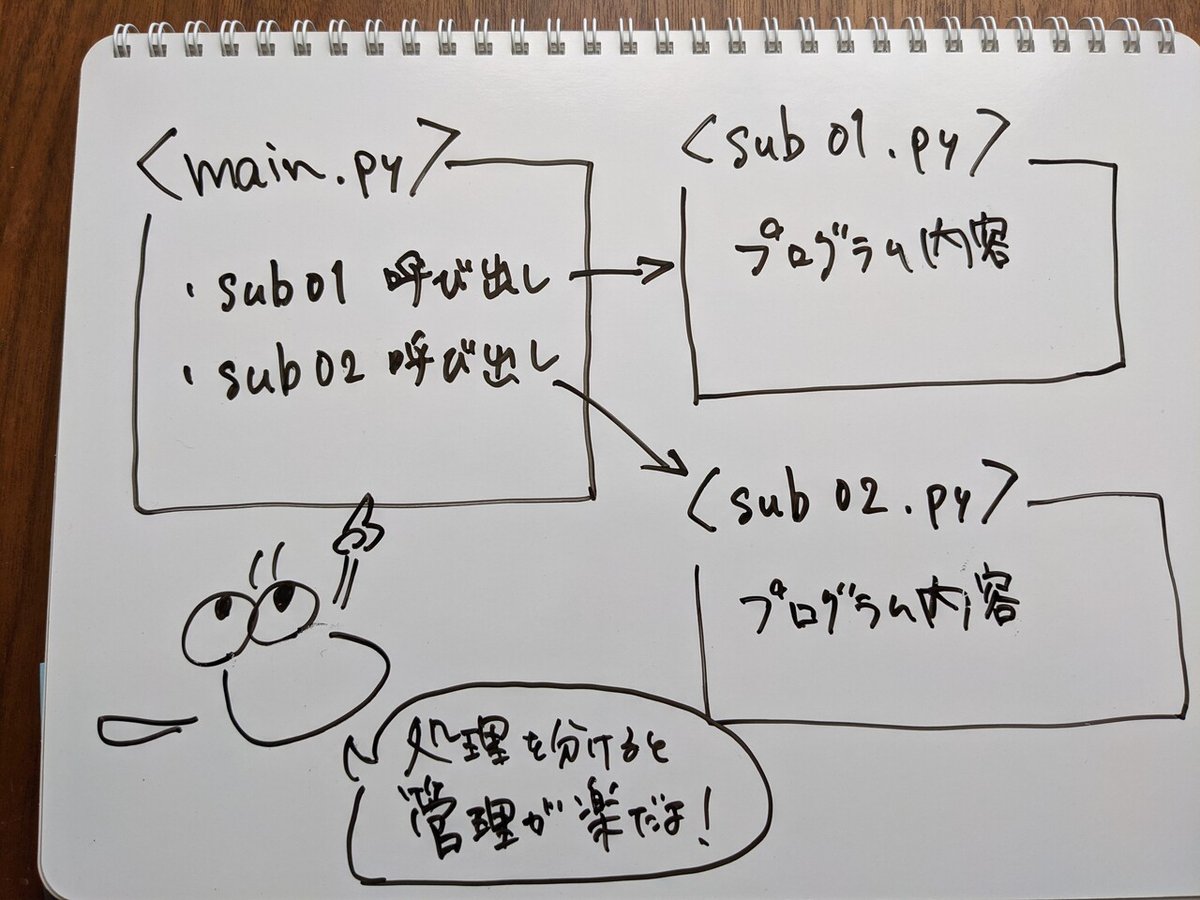 <main.py>
・sub01 呼び出し
・sub02 呼び出し
<sub01.py>
プログラム内容
<sub02.py>
プログラム内容
処理を分けると
管理が楽だよ!